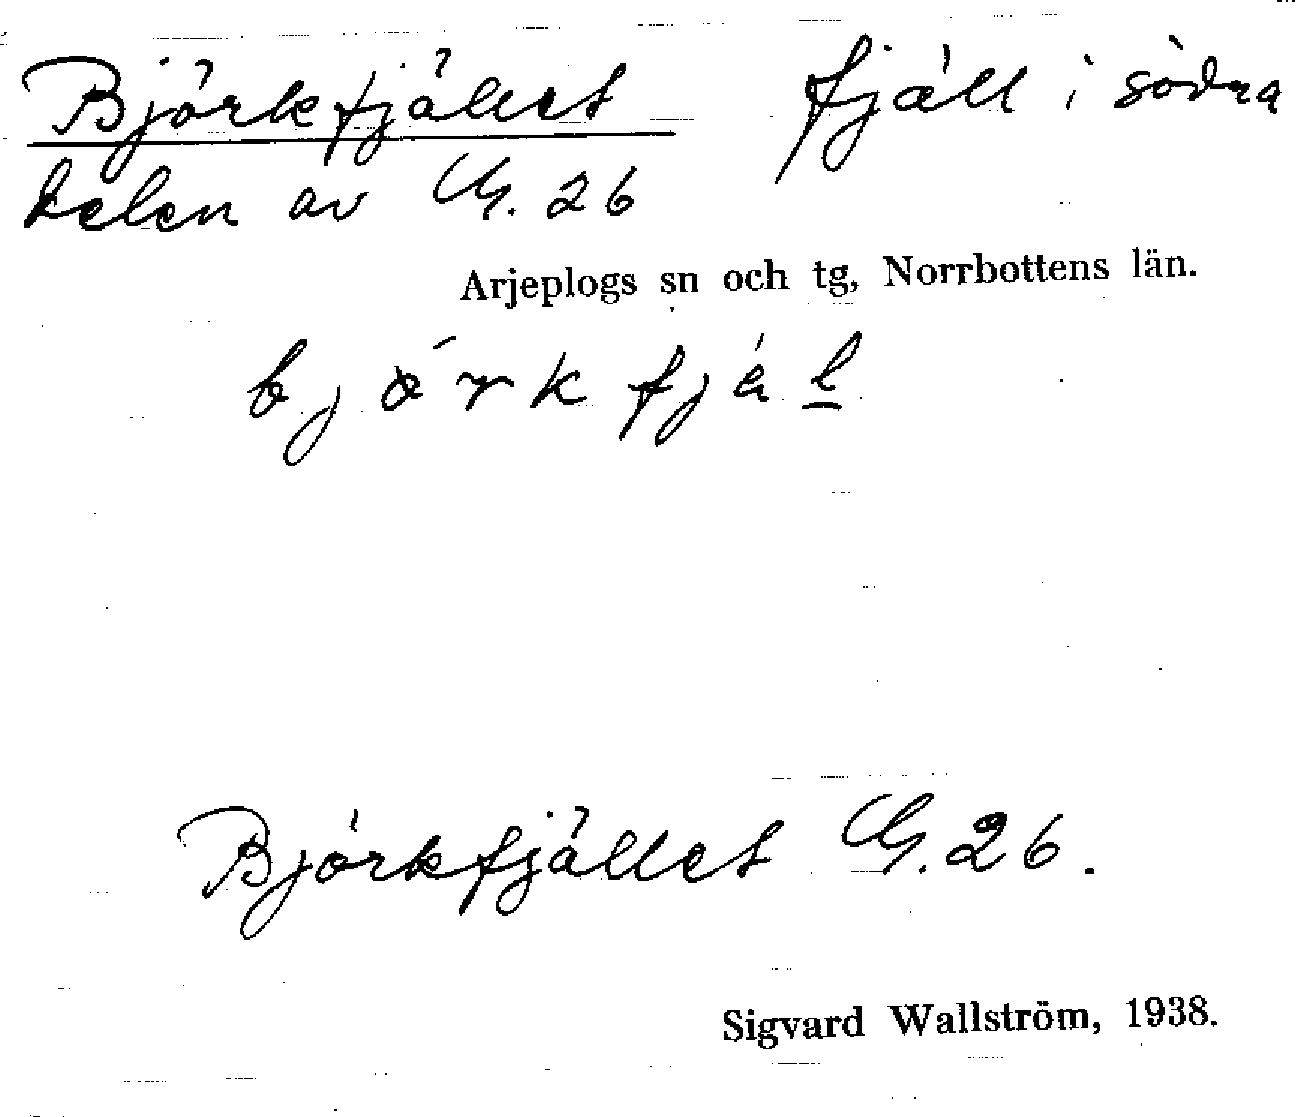 Björkfjället fjäll i södra
delen av G. 26
Arjeplogs sn och tg, Norrbottens län.
bjö́rkfjäl̲
Björkfjället G. 26.
Sigvard Wallström, 1938.